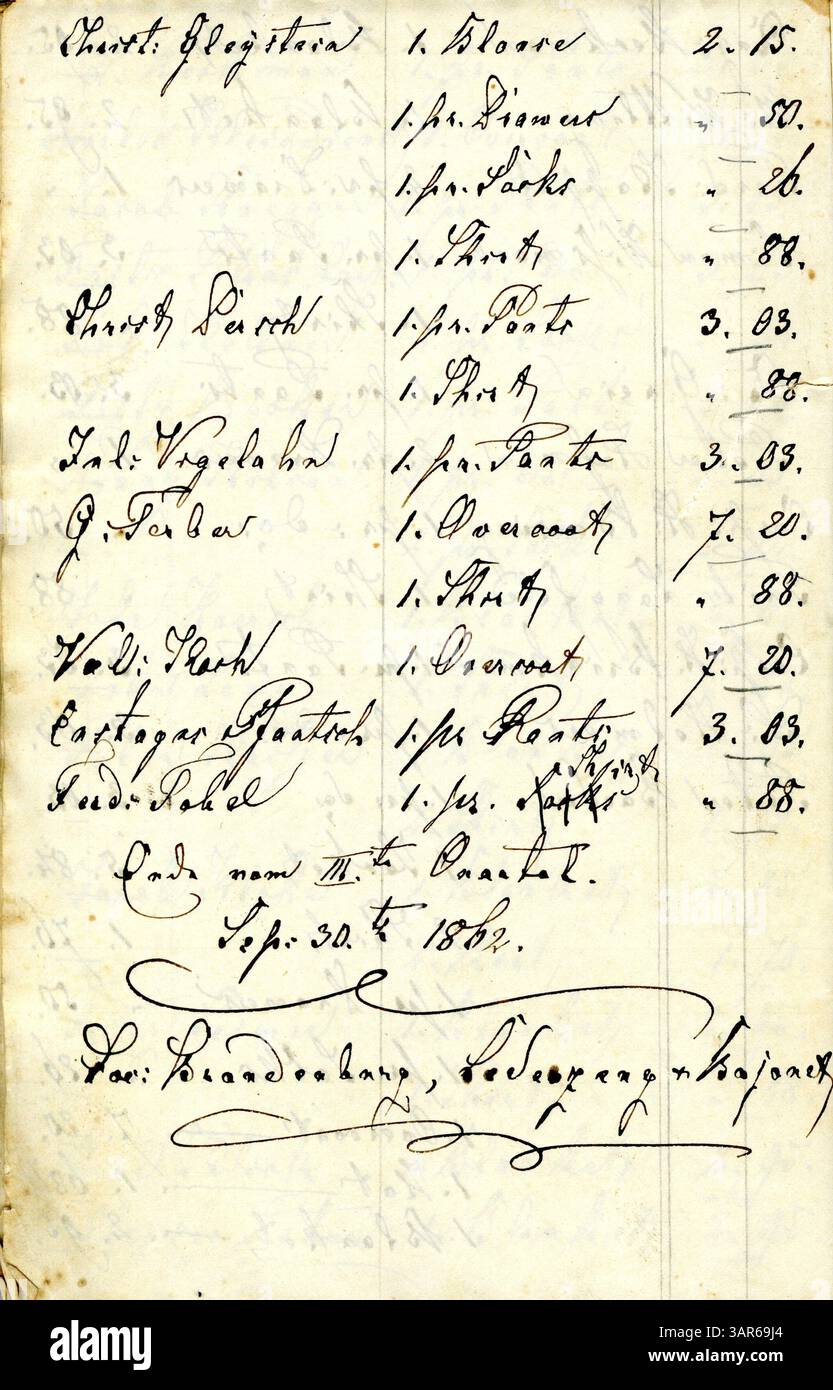 Christ: Gleÿstein 1. Blouse 2. 15.
1. pr. Drawers " 50.
1. pr. Socks " 26.
1. Shirt " 88.
Christ Dersch 1. pr. Pants 3. 03.
1. Shirt " 88.
Jul: Vogelahn 1. pr. Pants 3. 03.
G: Ferber 1. Overcoat 7. 20.
1. Shirt " 88.
Val: Koch 1. Overcoat 7. 20.
Pfaatsch 1. pr Pants 3. 03.
Shirt
Ferd: Tobel 1. pr. Socks " 88.
Ende vom III.te Quartal.
Sep: 30.te 1862.
Brandenburg, Lederzeug u Bajonet
alamy
alamy
Image ID: 3AR69J4
www.alamy.com